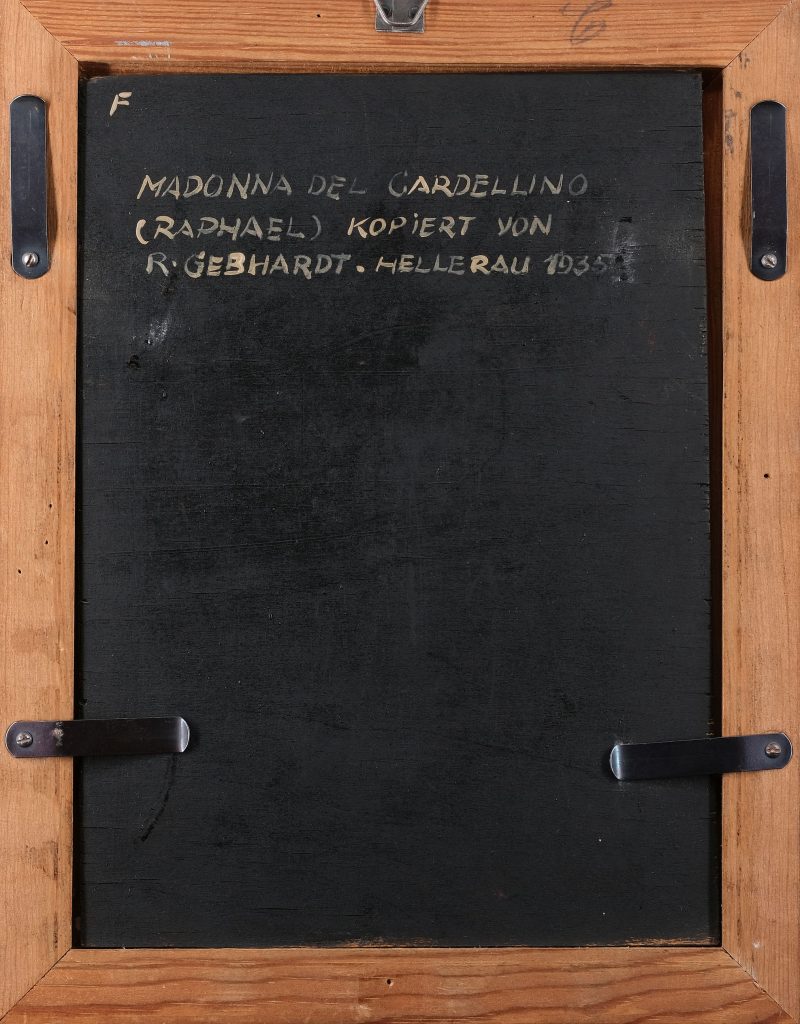 F
MADONNA DEL CARDELLINO
(RAPHAEL) KOPIERT VON
R. GEBHARDT. HELLERAU 1935